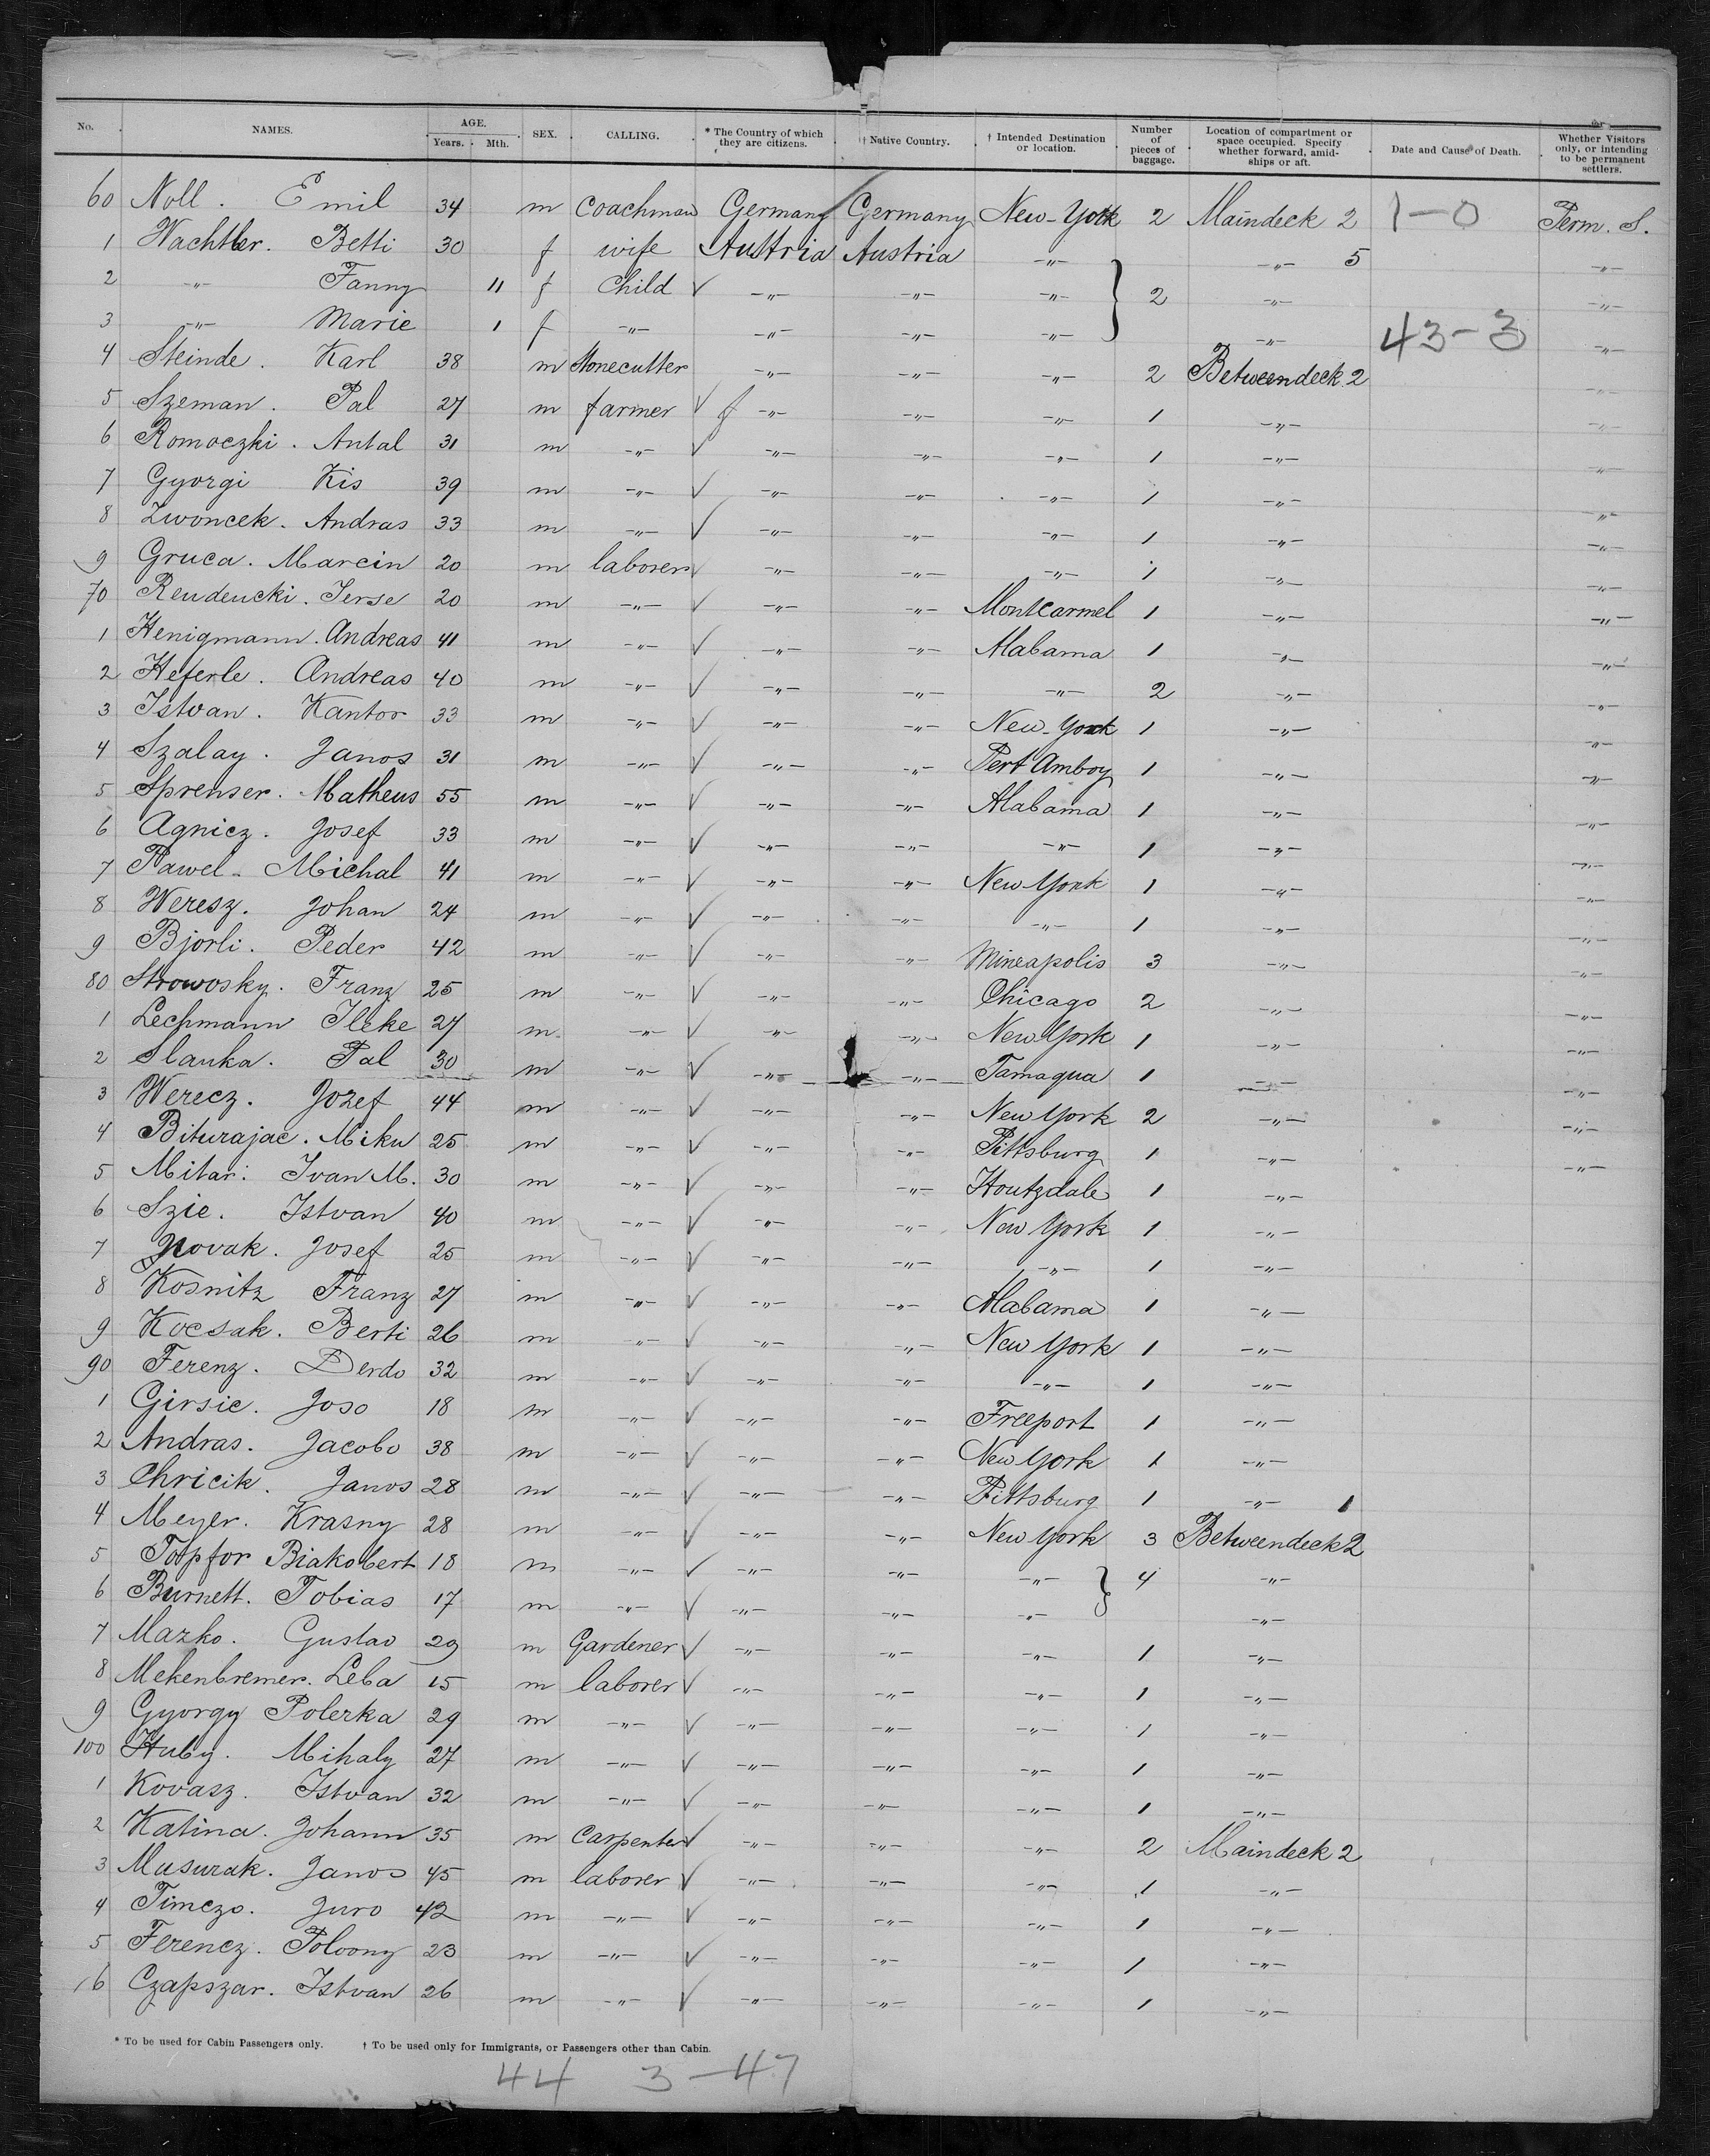 No. NAMES. AGE. Years. Mth. SEX. CALLING. * The Country of which they are citizens. † Native Country. † Intended Destination or location. Number of pieces of baggage. Location of compartment or space occupied. Specify whether forward, amidships or aft. Date and Cause of Death. Whether Visitors only, or intending to be permanent settlers.
60 Noll. Emil 34 m Coachman Germany Germany New-York 2 Maindeck 2 1-0 Perm. S.
1 Wachtler. Betti 30 f wife Austria Austria -"- -"- 5 -"-
2 -"- Fanny 11 f Child -"- -"- -"- 2 -"- -"-
3 -"- Marie 1 f -"- -"- -"- -"- -"- 43-3 -"-
4 Steinde. Karl 38 m Stonecutter -"- -"- -"- 2 Betweendeck 2 -"-
5 Szeman. Pal 27 m farmer -"- -"- -"- 1 -"- -"-
6 Romoczki. Antal 31 m -"- -"- -"- -"- 1 -"- -"-
7 Gyorgi Kis 39 m -"- -"- -"- -"- 1 -"- -"-
8 Zwoncek. Andras 33 m -"- -"- -"- -"- 1 -"- -"-
9 Gruca. Marcin 20 m laborer -"- -"- -"- 1 -"- -"-
70 Reudeucki. Jerse 20 m -"- -"- -"- Montcarmel 1 -"- -"-
1 Henigmann. Andreas 41 m -"- -"- -"- Alabama 1 -"- -"-
2 Heferle. Andreas 40 m -"- -"- -"- -"- 2 -"- -"-
3 Istvan. Kantor 33 m -"- -"- -"- New-York 1 -"- -"-
4 Szalay. Janos 31 m -"- -"- -"- Pert Amboy 1 -"- -"-
5 Sprenser. Matheus 55 m -"- -"- -"- Alabama 1 -"- -"-
6 Agnicz. Josef 33 m -"- -"- -"- -"- 1 -"- -"-
7 Pawel- Michal 41 m -"- -"- -"- New York 1 -"- -"-
8 Weresz. Johan 24 m -"- -"- -"- -"- 1 -"- -"-
9 Bjorli. Peder 42 m -"- -"- -"- Mineapolis 3 -"- -"-
80 Strowosky. Franz 25 m -"- -"- -"- Chicago 2 -"- -"-
1 Lechmann Ilcke 27 m -"- -"- -"- New York 1 -"- -"-
2 Slanka. Pal 30 m -"- -"- -"- Tamaqua 1 -"- -"-
3 Werecz. Jozef 44 m -"- -"- -"- New York 2 -"- -"-
4 Biturajac. Miku 25 m -"- -"- -"- Pittsburg 1 -"- -"-
5 Mitar. Ivan M. 30 m -"- -"- -"- Houtzdale 1 -"-
6 Szie. Istvan 40 m -"- -"- -"- New York 1 -"-
7 Novak. Josef 25 m -"- -"- -"- -"- 1 -"-
8 Kosnitz Franz 27 m -"- -"- -"- Alabama 1 -"-
9 Kocsak. Berti 26 m -"- -"- -"- New York 1 -"-
90 Ferenz. Derdo 32 m -"- -"- -"- -"- 1 -"-
1 Girsic. Joso 18 m -"- -"- -"- Freeport 1 -"-
2 Andras. Jacobo 38 m -"- -"- -"- New York 1 -"-
3 Chricik. Janos 28 m -"- -"- -"- Pittsburg 1 -"- 1
4 Meyer. Krasny 28 m -"- -"- -"- New York 3 Betweendeck 2
5 Topfor Biakobert 18 m -"- -"- -"- -"- 4 -"-
6 Burnett. Tobias 17 m -"- -"- -"- -"- -"-
7 Mazko. Gustav 29 m Gardener -"- -"- -"- 1 -"-
8 Mekenbremer. Leba 15 m laborer -"- -"- -"- 1 -"-
9 Gyorgy Polerka 29 m -"- -"- -"- -"- 1 -"-
100 Huby. Mihaly 27 m -"- -"- -"- -"- 1 -"-
1 Kovasz. Istvan 32 m -"- -"- -"- -"- 1 -"-
2 Katina. Johann 35 m Carpenter -"- -"- -"- 2 Maindeck 2
3 Musurak. Janos 45 m laborer -"- -"- -"- 1 -"-
4 Timczo. Juro 42 m -"- -"- -"- -"- 1 -"-
5 Ferencz. Poloony 23 m -"- -"- -"- -"- 1 -"-
6 Czapszar. Istvan 26 m -"- -"- -"- -"- 1 -"-
* To be used for Cabin Passengers only. † To be used only for Immigrants, or Passengers other than Cabin.
44 3-47